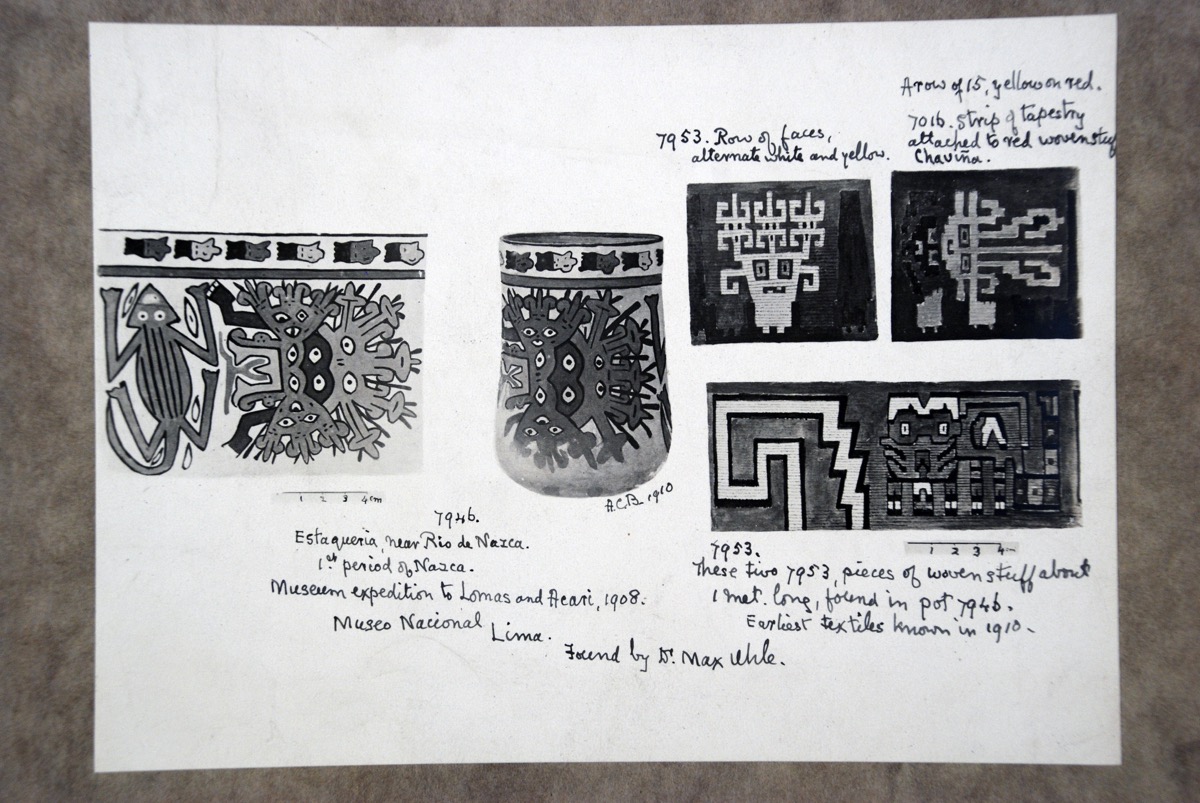 A row of 15, yellow on red.
7016. Strip of tapestry
attached to red woven stuff
Chaviña.
7953. Row of faces,
alternate white and yellow.
A.C.B. 1910
1 2 3 4 cm
7946.
Estaqueria, near Rio de Nazca.
1st period of Nazca.
Museum expedition to Lomas and Acari, 1908.
Museo Nacional
Lima.
Found by Dr. Max Uhle.
1 2 3 4 cm
7953.
These two 7953, pieces of woven stuff about
1 met. long, found in pot 7946.
Earliest textiles known in 1910.